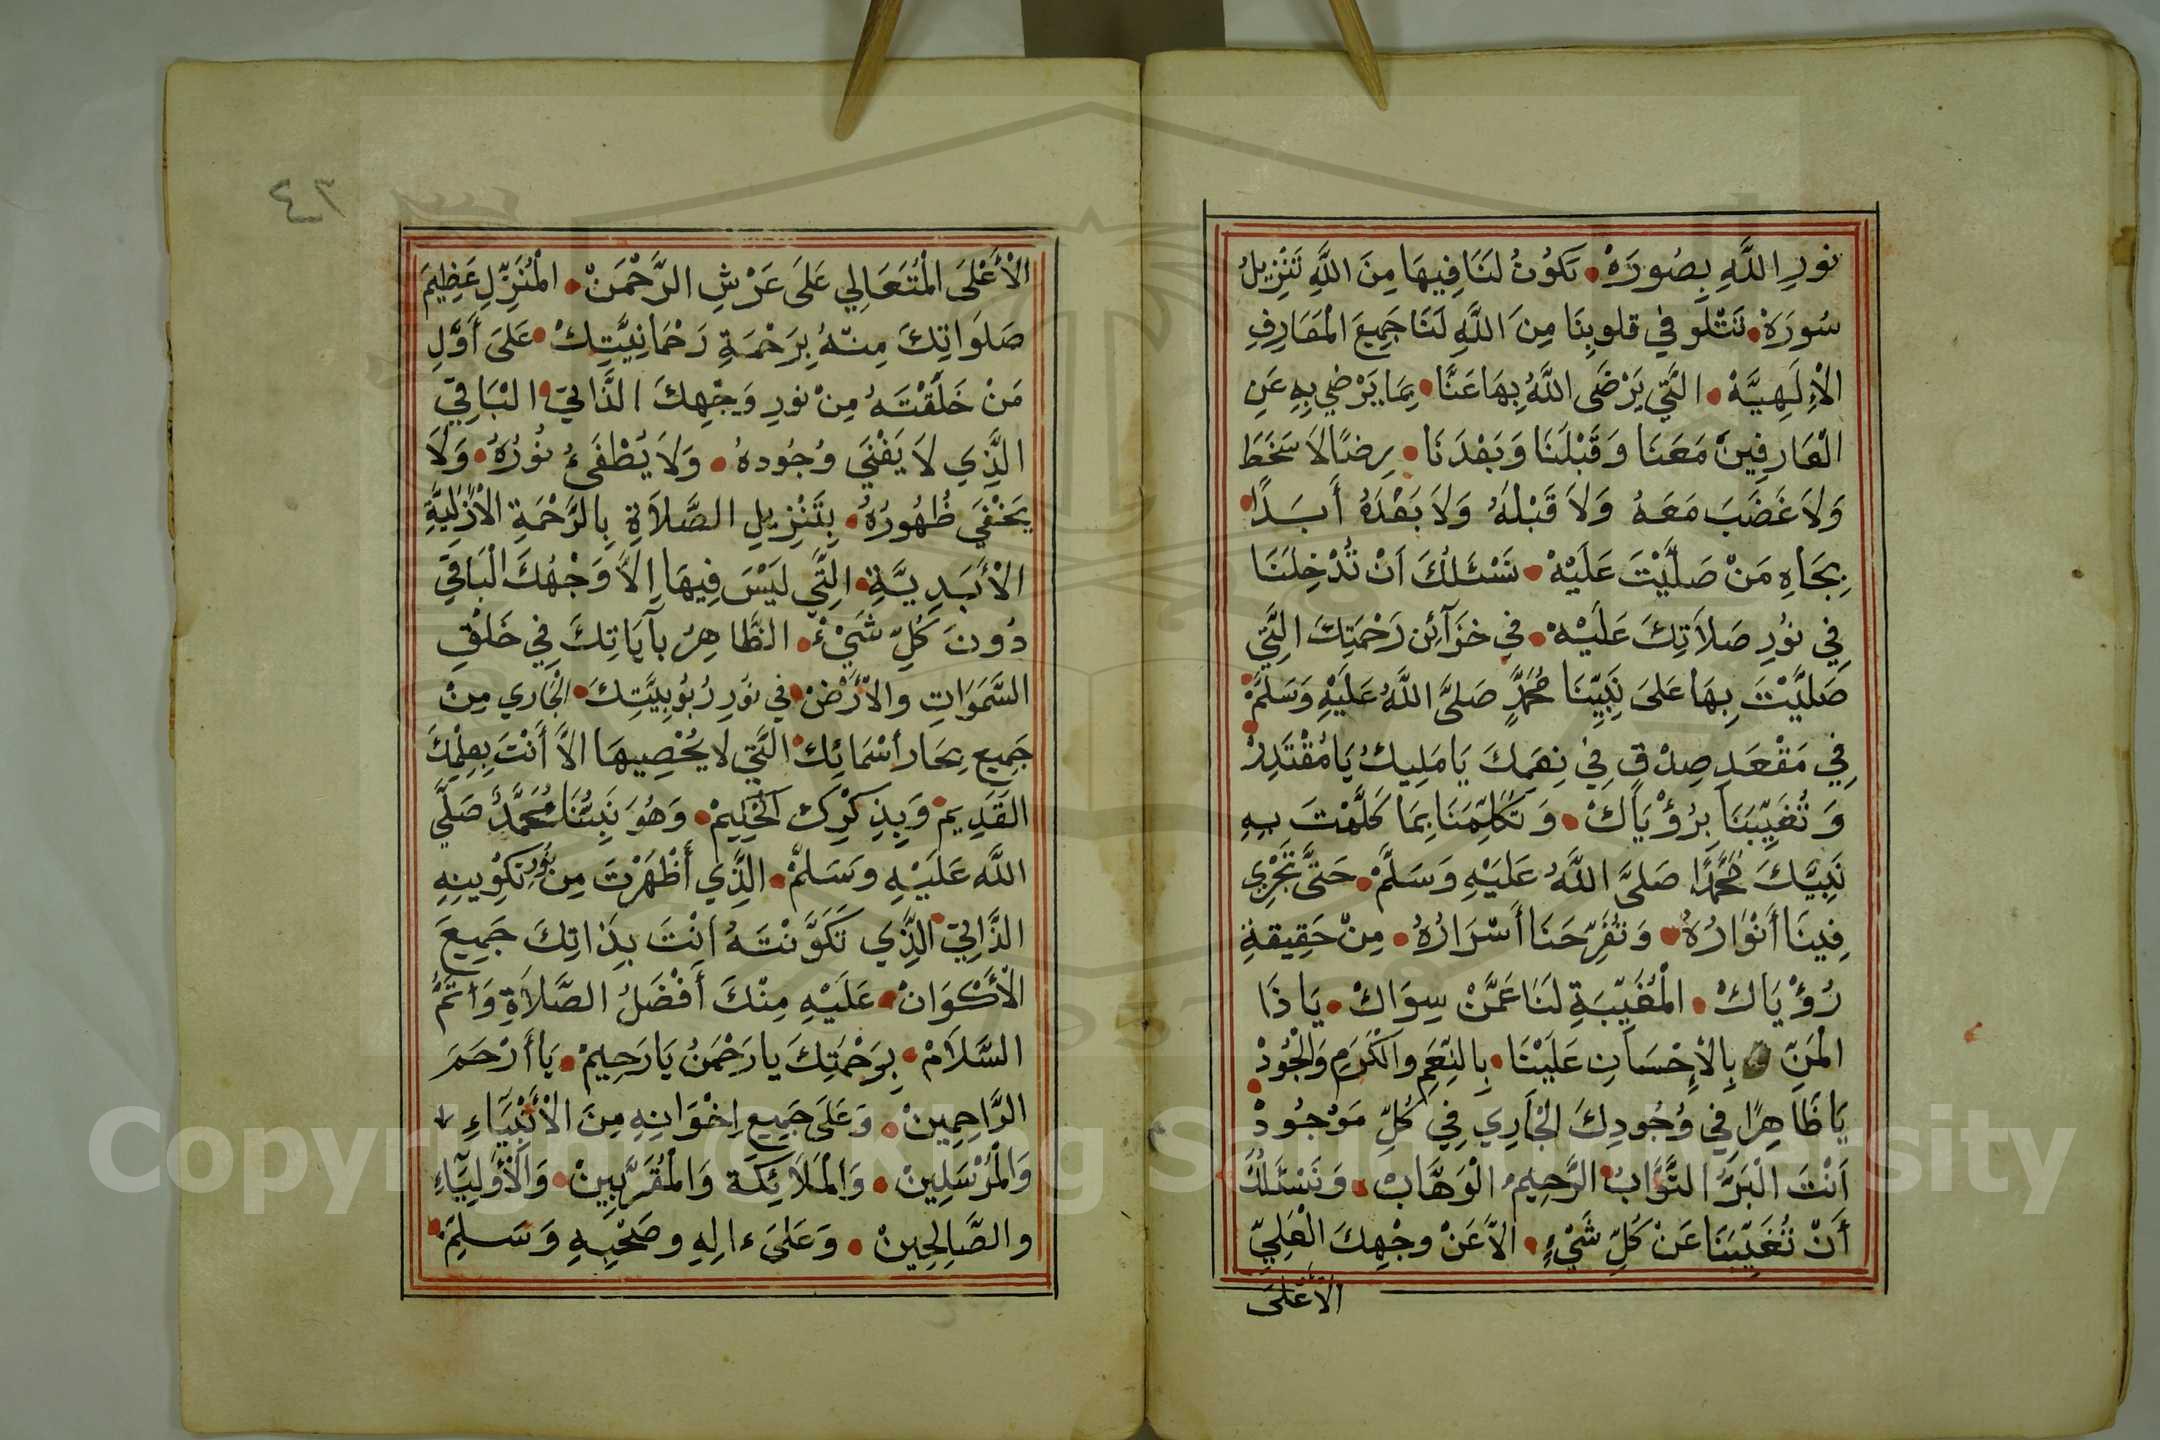 نُورِ اللَّهِ بِصُورَةْ • تَكُونُ لَنَا فِيهَا مِنَ اللَّهِ تَنْزِيلُ
سُورَةْ • تَتْلُو فِي قُلُوبِنَا مِنَ اللَّهِ لَنَا جَمِيعَ الْمَعَارِفِ
الْإِلَهِيَّةْ • الَّتِي يَرْضَى اللَّهُ بِهَا عَنَّا • بِمَا يَرْضِي بِهِ عَنِ
الْعَارِفِينَ مَعَنَا وَقَبْلَنَا وَبَعْدَنَا • رِضًا لَا سَخَطَ
وَلَا غَضَبَ مَعَهُ وَلَا قَبْلَهُ وَلَا بَعْدَهُ أَبَدًا •
بِجَاهِ مَنْ صَلَّيْتَ عَلَيْهْ • نَسْئَلُكَ اَنْ تُدْخِلَنَا
فِي نُورِ صَلَاتِكَ عَلَيْهْ • فِي خَزَآئِنِ رَحْمَتِكَ الَّتِي
صَلَّيْتَ بِهَا عَلَى نَبِيِّنَا مُحَمَّدٍ صَلَّى اللَّهُ عَلَيْهِ وَسَلَّمْ •
فِي مَقْعَدِ صِدْقٍ فِي نِعَمِكَ يَا مَلِيكُ يَا مُقْتَدِرْ •
وَتُغَيِّبَنَا بِرُؤْيَاكْ • وَتُكَلِّمَنَا بِمَا كَلَّمْتَ بِهِ
نَبِيَّكَ مُحَمَّدًا صَلَّى اللَّهُ عَلَيْهِ وَسَلَّمْ • حَتَّى تَجْرِي
فِينَا أَنْوَارُهُ • وَتُفَرِّحَنَا أَسْرَارُهُ • مِنْ حَقِيقَةِ
رُؤْيَاكْ • الْمُغَيِّبَةِ لَنَا عَمَّنْ سِوَاكْ • يَا ذَا
الْمَنِّ بِالْإِحْسَانِ عَلَيْنَا • بِالنِّعَمِ وَالْكَرَمِ وَالْجُودْ •
يَا ظَاهِرًا فِي وُجُودِكَ الْجَارِي فِي كُلِّ مَوْجُودْ
اَنْتَ الْبَرُّ التَّوَّابُ الرَّحِيمُ الْوَهَّابْ • وَنَسْئَلُكَ
أَنْ تُغَيِّبَنَا عَنْ كُلِّ شَيْءٍ • اِلَّا عَنْ وَجْهِكَ الْعَلِيِّ
الْأَعْلَى
٤٣
الْأَعْلَى الْمُتَعَالِي عَلَى عَرْشِ الرَّحْمَنْ • الْمُنَزِّلِ عَظِيمَ
صَلَوَاتِكَ مِنْهُ بِرَحْمَةِ رَحْمَانِيَّتِكْ • عَلَى أَوَّلِ
مَنْ خَلَقْتَهُ مِنْ نُورِ وَجْهِكَ الذَّاتِيِّ الْبَاقِي
الَّذِي لَا يَفْنَى وُجُودهُ • وَلَا يُطْفَىءُ نُورُهُ • وَلَا
يَخْفَى ظُهُورُهُ • بِتَنْزِيلِ الصَّلَاةِ بِالرَّحْمَةِ الْأَزَلِيَّةِ
الْأَبَدِيَّةِ • الَّتِي لَيْسَ فِيهَا اِلَّا وَجْهُكَ الْبَاقِي
دُونَ كُلِّ شَيْءْ • الظَّاهِرُ بِآيَاتِكَ فِي خَلْقِ
السَّمَوَاتِ وَالْأَرْضْ • فِي نُورِ رُبُوبِيَّتِكَ • الْجَارِي مِنْ
جَمِيعِ بِحَارِ أَسْمَائِكْ • الَّتِي لَا يُحْصِيهَا اِلَّا أَنْتَ بِعِلْمِكَ
القَدِيمْ • وَبِذِكْرِكَ الحَكِيمْ • وَهُوَ نَبِيُّنَا مُحَمَّدٌ صَلَّى
اللَّه عَلَيْهِ وَسَلَّمْ • الَّذِي أَظْهَرْتَ مِنْ نُورِ تَكْوِينِهِ
الذَّاتِيِّ • الَّذِي تَكَوَّنْتَهُ اَنْتَ بِذَاتِكَ جَمِيعَ
الْأَكْوَانْ • عَلَيْهِ مِنْكَ أَفْضَلُ الصَّلَاةِ وَأَتَمُّ
السَّلَامْ • بِرَحْمَتِكَ يَا رَحْمَنُ يَا رَحِيمْ • يَا أَرْحَمَ
الرَّاحِمِينْ • وَعَلَى جَمِيعِ اِخْوَانِهِ مِنَ الْأَنْبِيَاءِ
وَالْمُرْسَلِينْ • وَالْمَلَائِكَة وَالْمُقَرَّبِينْ • وَالْأَوْلِيَآءِ
وَالصَّالِحِينْ • وَعَلَى ءالِهِ وَصَحْبِهِ وَسَلِّمْ •
Copyright © King Saud University